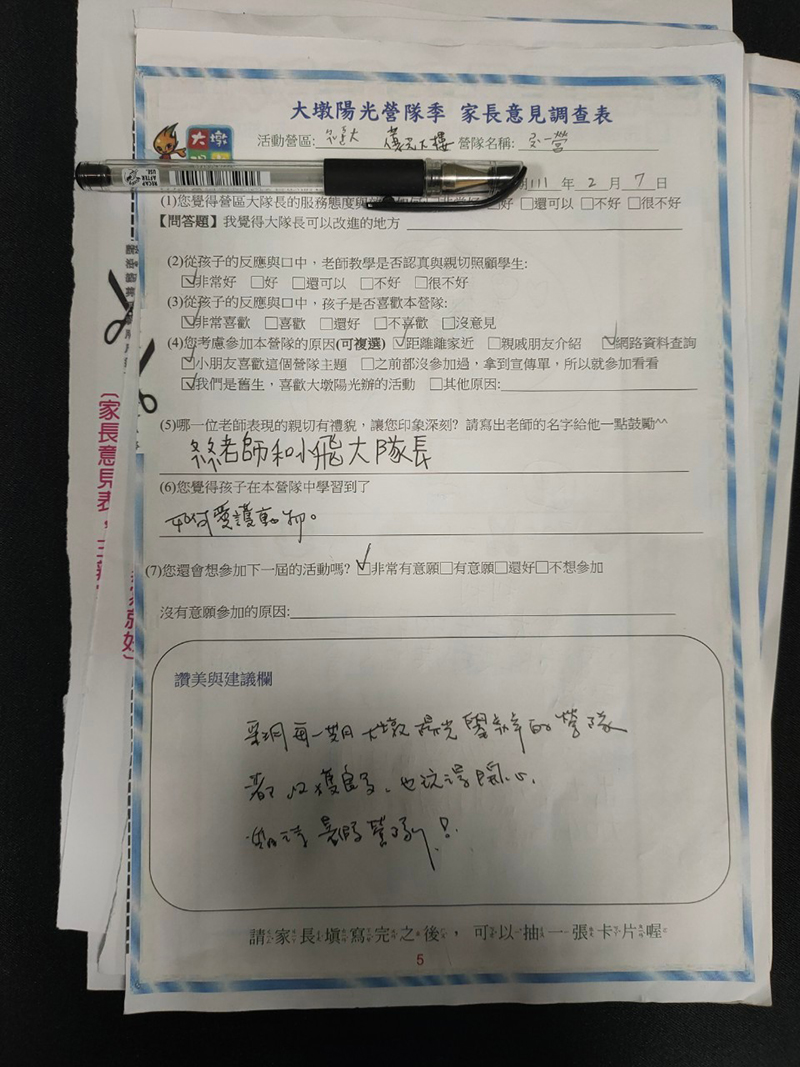 大墩陽光營隊季 家長意見調查表
大墩
活動營區: 大樓 營隊名稱: 營
111 年 2 月 7 日
(1)您覺得營區大隊長的服務態度與 好 □還可以 □不好 □很不好
【問答題】我覺得大隊長可以改進的地方
(2)從孩子的反應與口中，老師教學是否認真與親切照顧學生:
☑非常好 □好 □還可以 □不好 □很不好
(3)從孩子的反應與口中，孩子是否喜歡本營隊:
☑非常喜歡 □喜歡 □還好 □不喜歡 □沒意見
(4)您考慮參加本營隊的原因(可複選) ☑距離離家近 □親戚朋友介紹 ☑網路資料查詢
☑小朋友喜歡這個營隊主題 □之前都沒參加過，拿到宣傳單，所以就參加看看
☑我們是舊生，喜歡大墩陽光辦的活動 □其他原因:
(5)哪一位老師表現的親切有禮貌，讓您印象深刻? 請寫出老師的名字給他一點鼓勵^^
絲老師和小飛大隊長
(6)您覺得孩子在本營隊中學習到了
如何愛護動物。
(7)您還會想參加下一屆的活動嗎? ☑非常有意願□有意願□還好□不想參加
沒有意願參加的原因:
讚美與建議欄
每一期大墩陽光舉辦的營隊
都收獲良多、也玩得開心.
暑假營隊!
請家長填寫完之後，可以抽一張卡片喔
5
RECAP AFTER USE
(家長意見表，